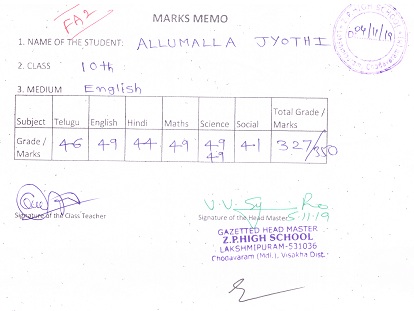 MARKS MEMO
FA2
1. NAME OF THE STUDENT: ALLUMALLA JYOTHI
2. CLASS 10th
3. MEDIUM English
Subject Telugu English Hindi Maths Science Social Total Grade / Marks
Grade / Marks 46 49 44 49 49 49 41 327/350
Signature of the Class Teacher
Signature of the Head Master
5-11-19
GAZETTED HEAD MASTER
Z.P.HIGH SCHOOL
LAKSHMIPURAM-531036
Chodavaram (Mdl.), Visakha Dist.